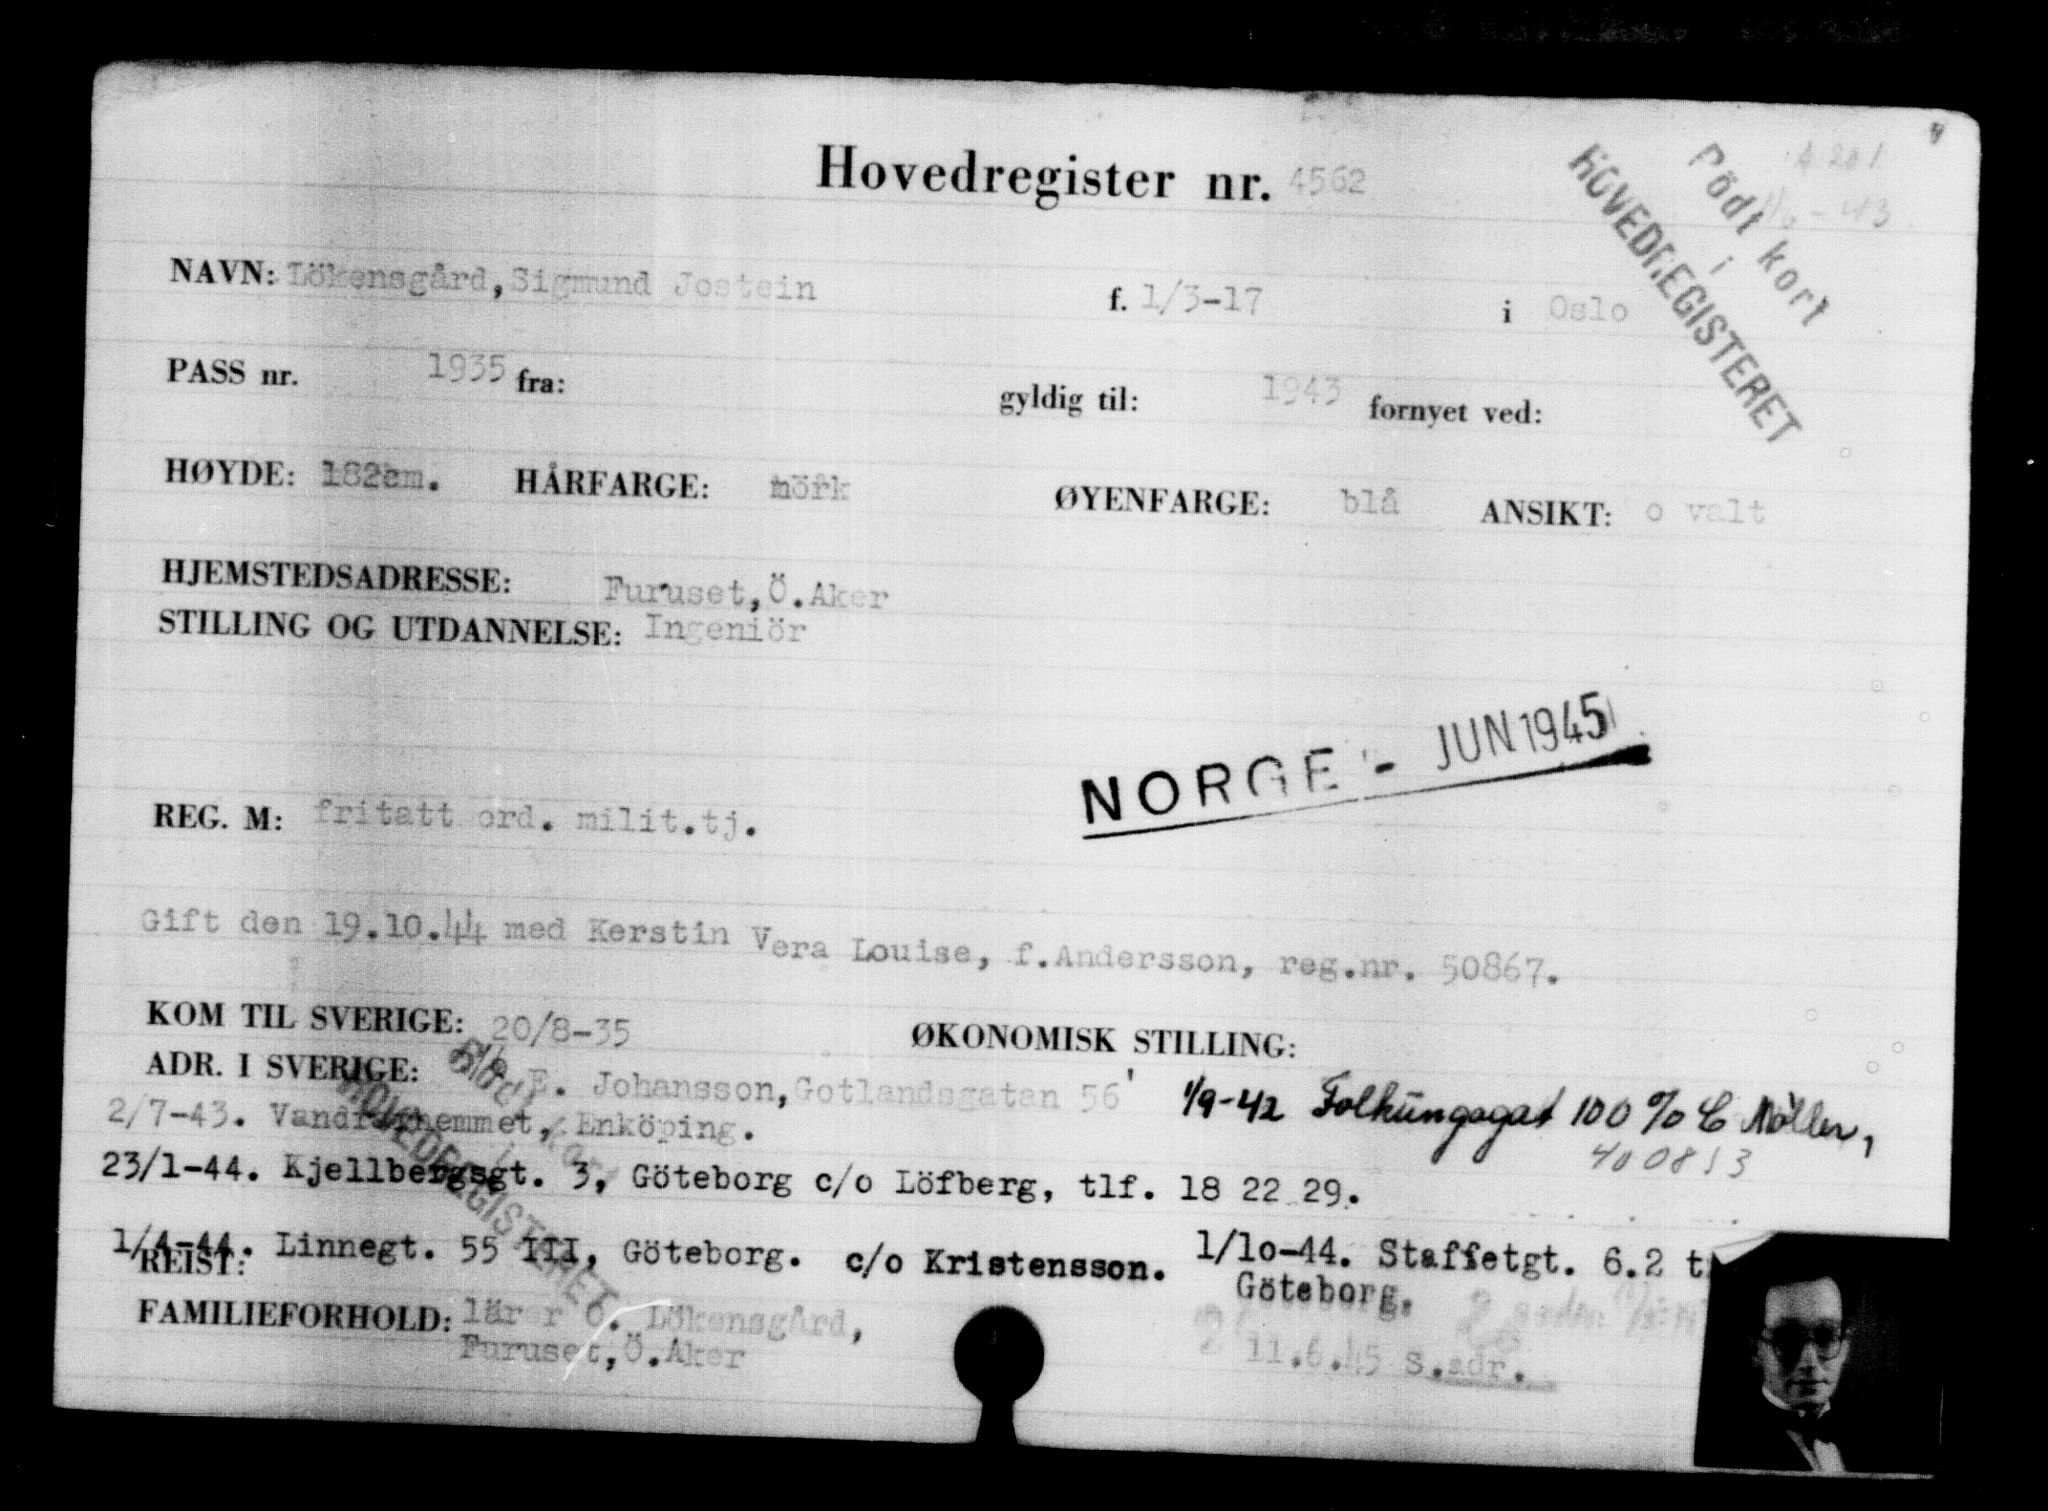 Hovedregister nr. 4562
A 201
Rödt kort
i
HOVEDREGISTERET
NAVN: Lökensgård, Sigmund Jostein f. 1/3-17 i Oslo
PASS nr. 1935 fra: gyldig til: 1943 fornyet ved:
HØYDE: 182cm. HÅRFARGE: mörk ØYENFARGE: blå ANSIKT: o valt
HJEMSTEDSADRESSE: Furuset, Ö. Aker
STILLING OG UTDANNELSE: Ingeniör
NORGE - JUN 1945
REG. M: fritatt ord. milit.tj.
Gift den 19.10.44 med Kerstin Vera Louise, f. Andersson, reg.nr. 50867.
KOM TIL SVERIGE: 20/8-35 ØKONOMISK STILLING:
ADR. I SVERIGE: E. Johansson, Gotlandsgatan 56 1/9-42 Folkungagat 100 % C Möller,
400813
2/7-43. Enköping.
rödt kort
i
HOVEDREGISTERET
23/1-44. Kjellbergsgt. 3, Göteborg c/o Löfberg, tlf. 18 22 29.
1/4-44. Linnegt. 55 III, Göteborg. c/o Kristensson. 1/10-44. Staffetgt. 6.2
Göteborg.
REIST:
FAMILIEFORHOLD: lärer O. Lökensgård,
Furuset, Ö. Aker
11.6.45 s.adr.